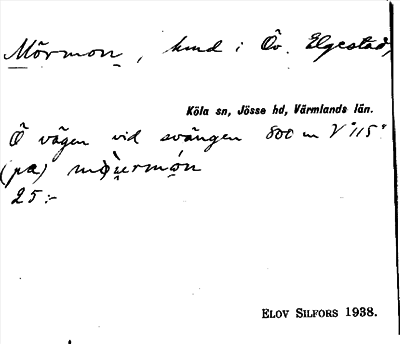 Mörmon, hmd i Öv. Elgestad,
Köla sn, Jösse hd, Värmlands län.
Ö vägen vid svängen 800 m V "115"
(pa) mòu̯rmó̱n
25:-
ELOV SILFORS 1938.